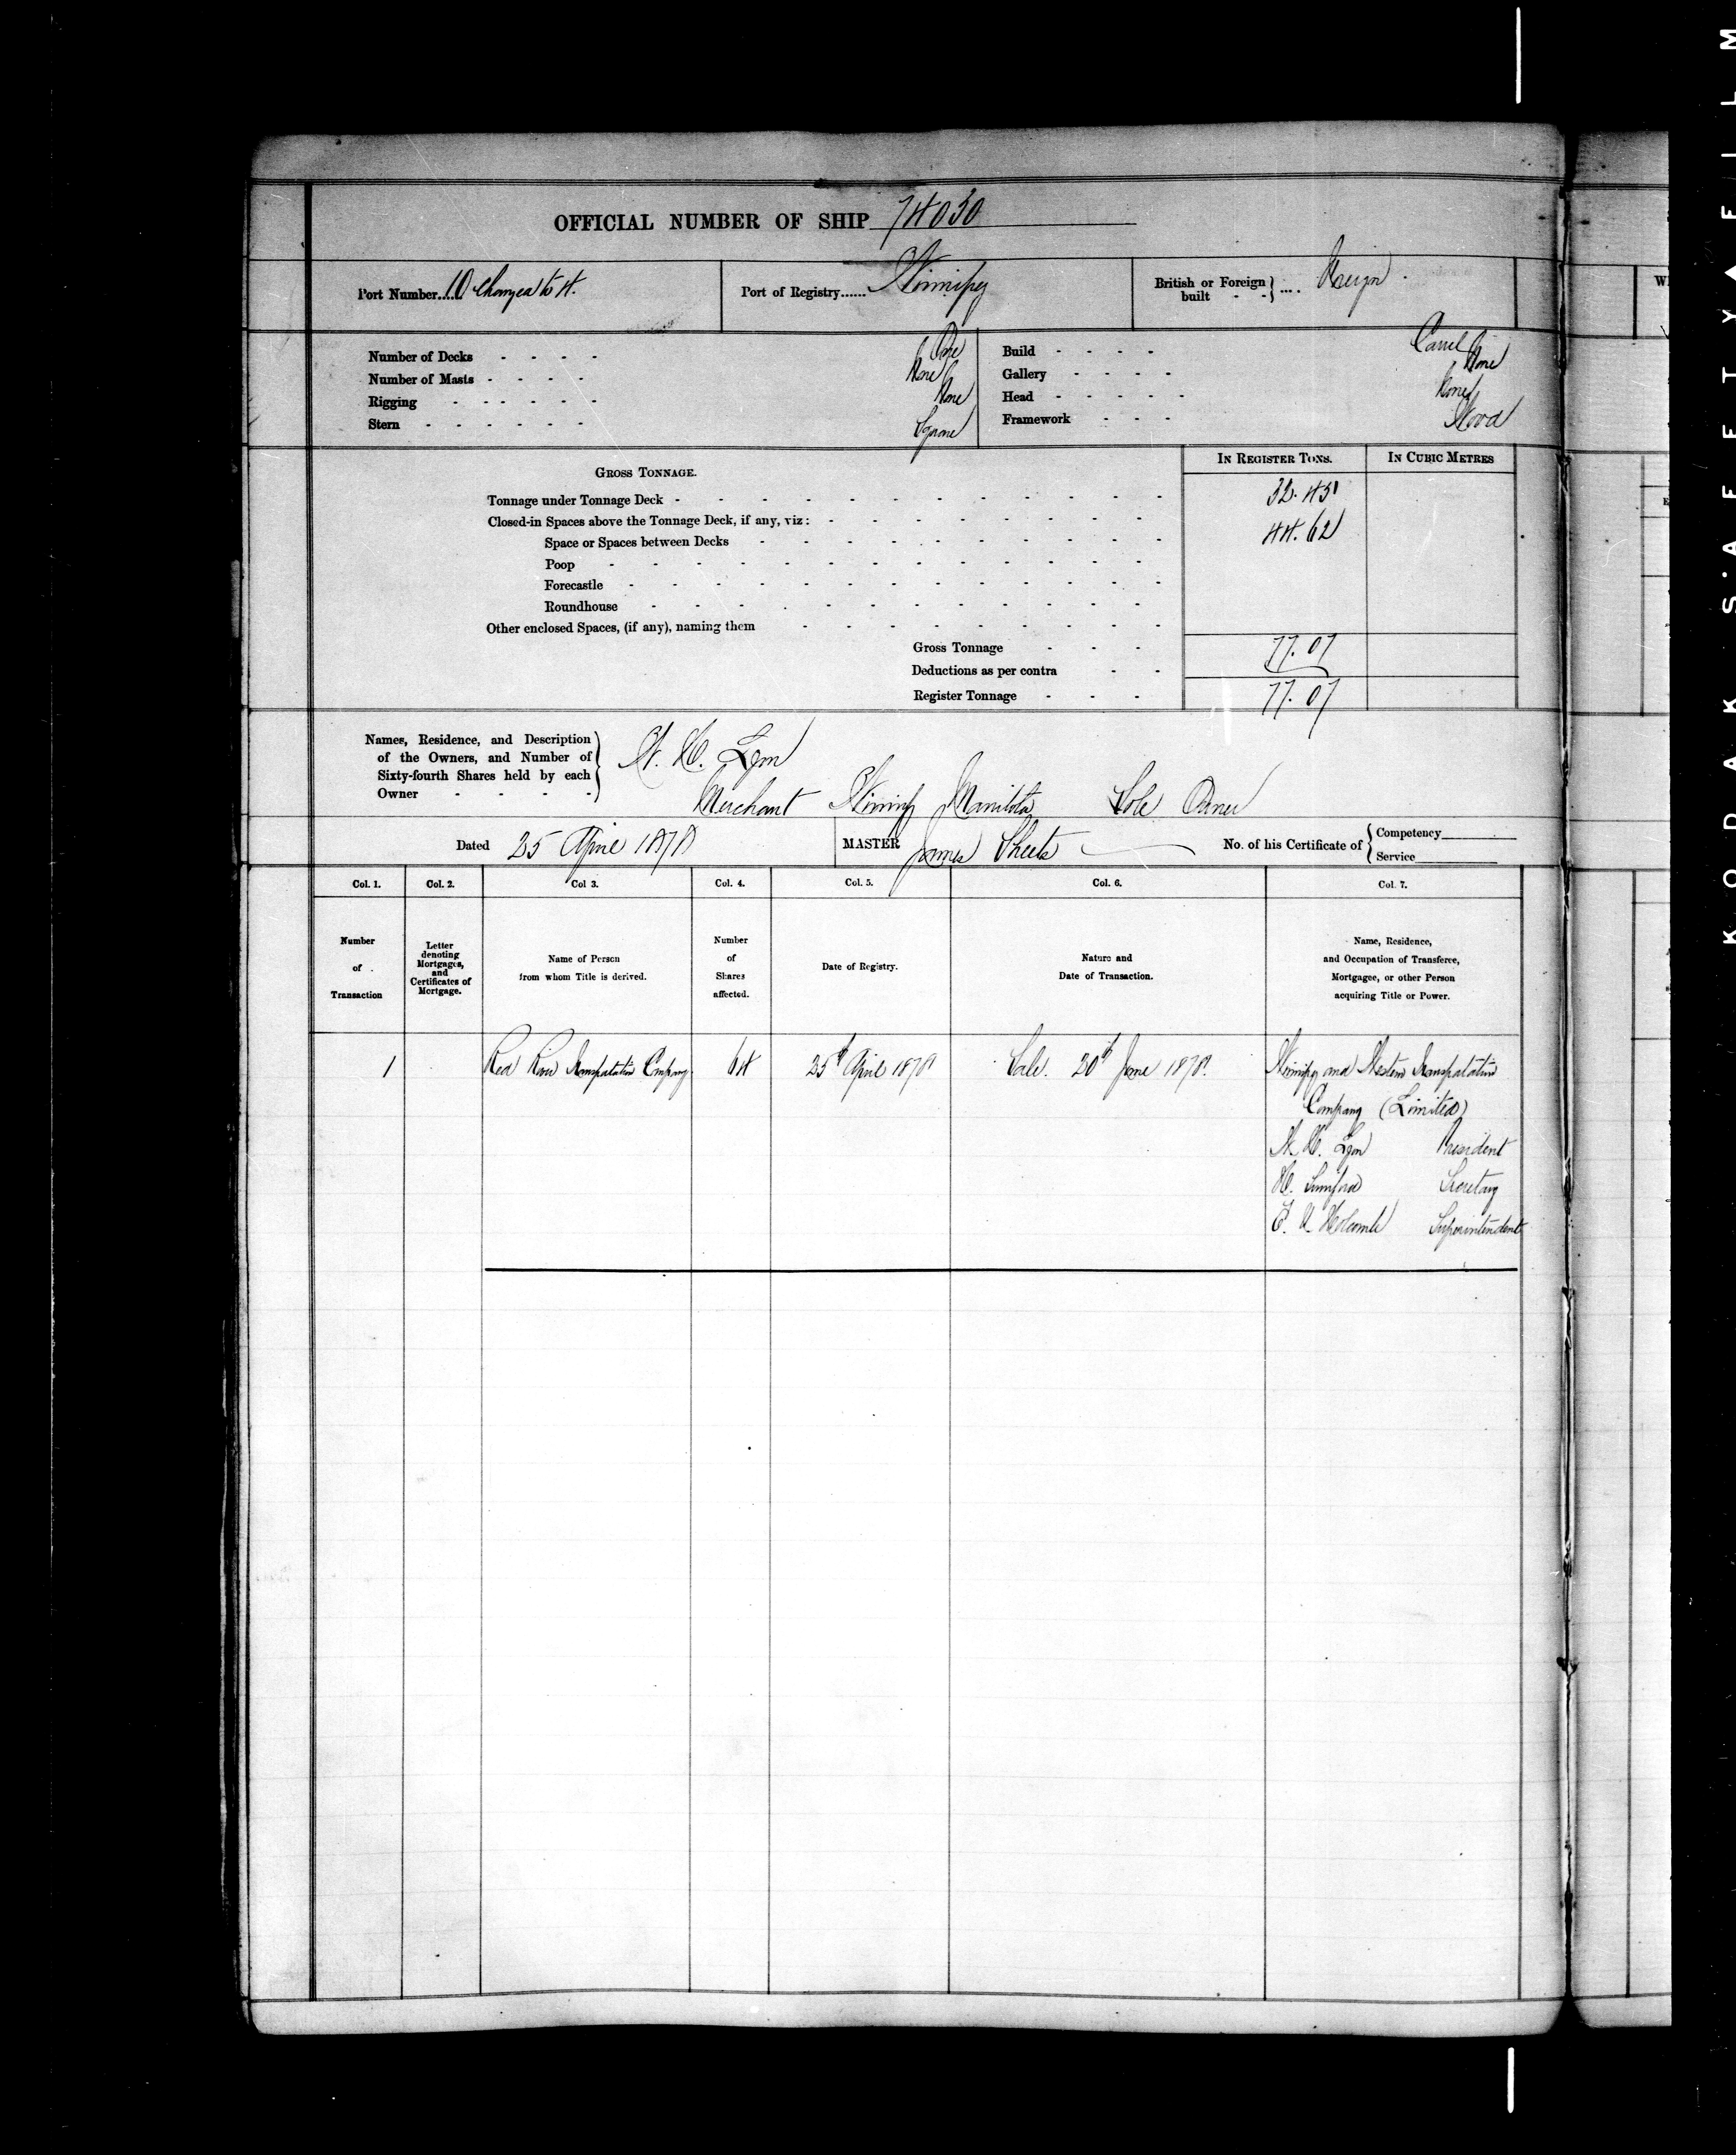 OFFICIAL NUMBER OF SHIP 74030
Port Number....10 Changed to 4.
Port of Registry...... Winnipeg
British or Foreign built - - } .... Foreign.
Number of Decks - - - - One
Number of Masts - - - - None
Rigging - - - - - - None
Stern - - - - - - Square
Build - - - - Carvel
Gallery - - - - None
Head - - - - - None
Framework - - - Wood
IN REGISTER TONS.
IN CUBIC METRES
GROSS TONNAGE.
Tonnage under Tonnage Deck - 32.45
Closed-in Spaces above the Tonnage Deck, if any, viz: - 44.62
Space or Spaces between Decks
Poop
Forecastle
Roundhouse
Other enclosed Spaces, (if any), naming them
Gross Tonnage - - - 77.07
Deductions as per contra - -
Register Tonnage - - - 77.07
Names, Residence, and Description
of the Owners, and Number of
Sixty-fourth Shares held by each
Owner - - - -
W. H. Lyon
Merchant Winnipeg Manitoba Sole Owner
Dated 25 April 1878
MASTER James Sheets
No. of his Certificate of { Competency
Service
Col. 1.
Col. 2.
Col 3.
Col. 4.
Col. 5.
Col. 6.
Col. 7.
Number
of
Transaction
Letter
denoting
Mortgages,
and
Certificates of
Mortgage.
Name of Person
from whom Title is derived.
Number
of
Shares
affected.
Date of Registry.
Nature and
Date of Transaction.
Name, Residence,
and Occupation of Transferee,
Mortgagee, or other Person
acquiring Title or Power.
1 Red River Transportation Company 64 25th April 1878 Sale. 20th June 1878. Winnipeg and Western Transportation
Company (Limited)
W. H. Lyon President
H. Secretary
E. V. Holcombe Superintendent
KODAK S·A·F·E·T·Y ▲ FILM